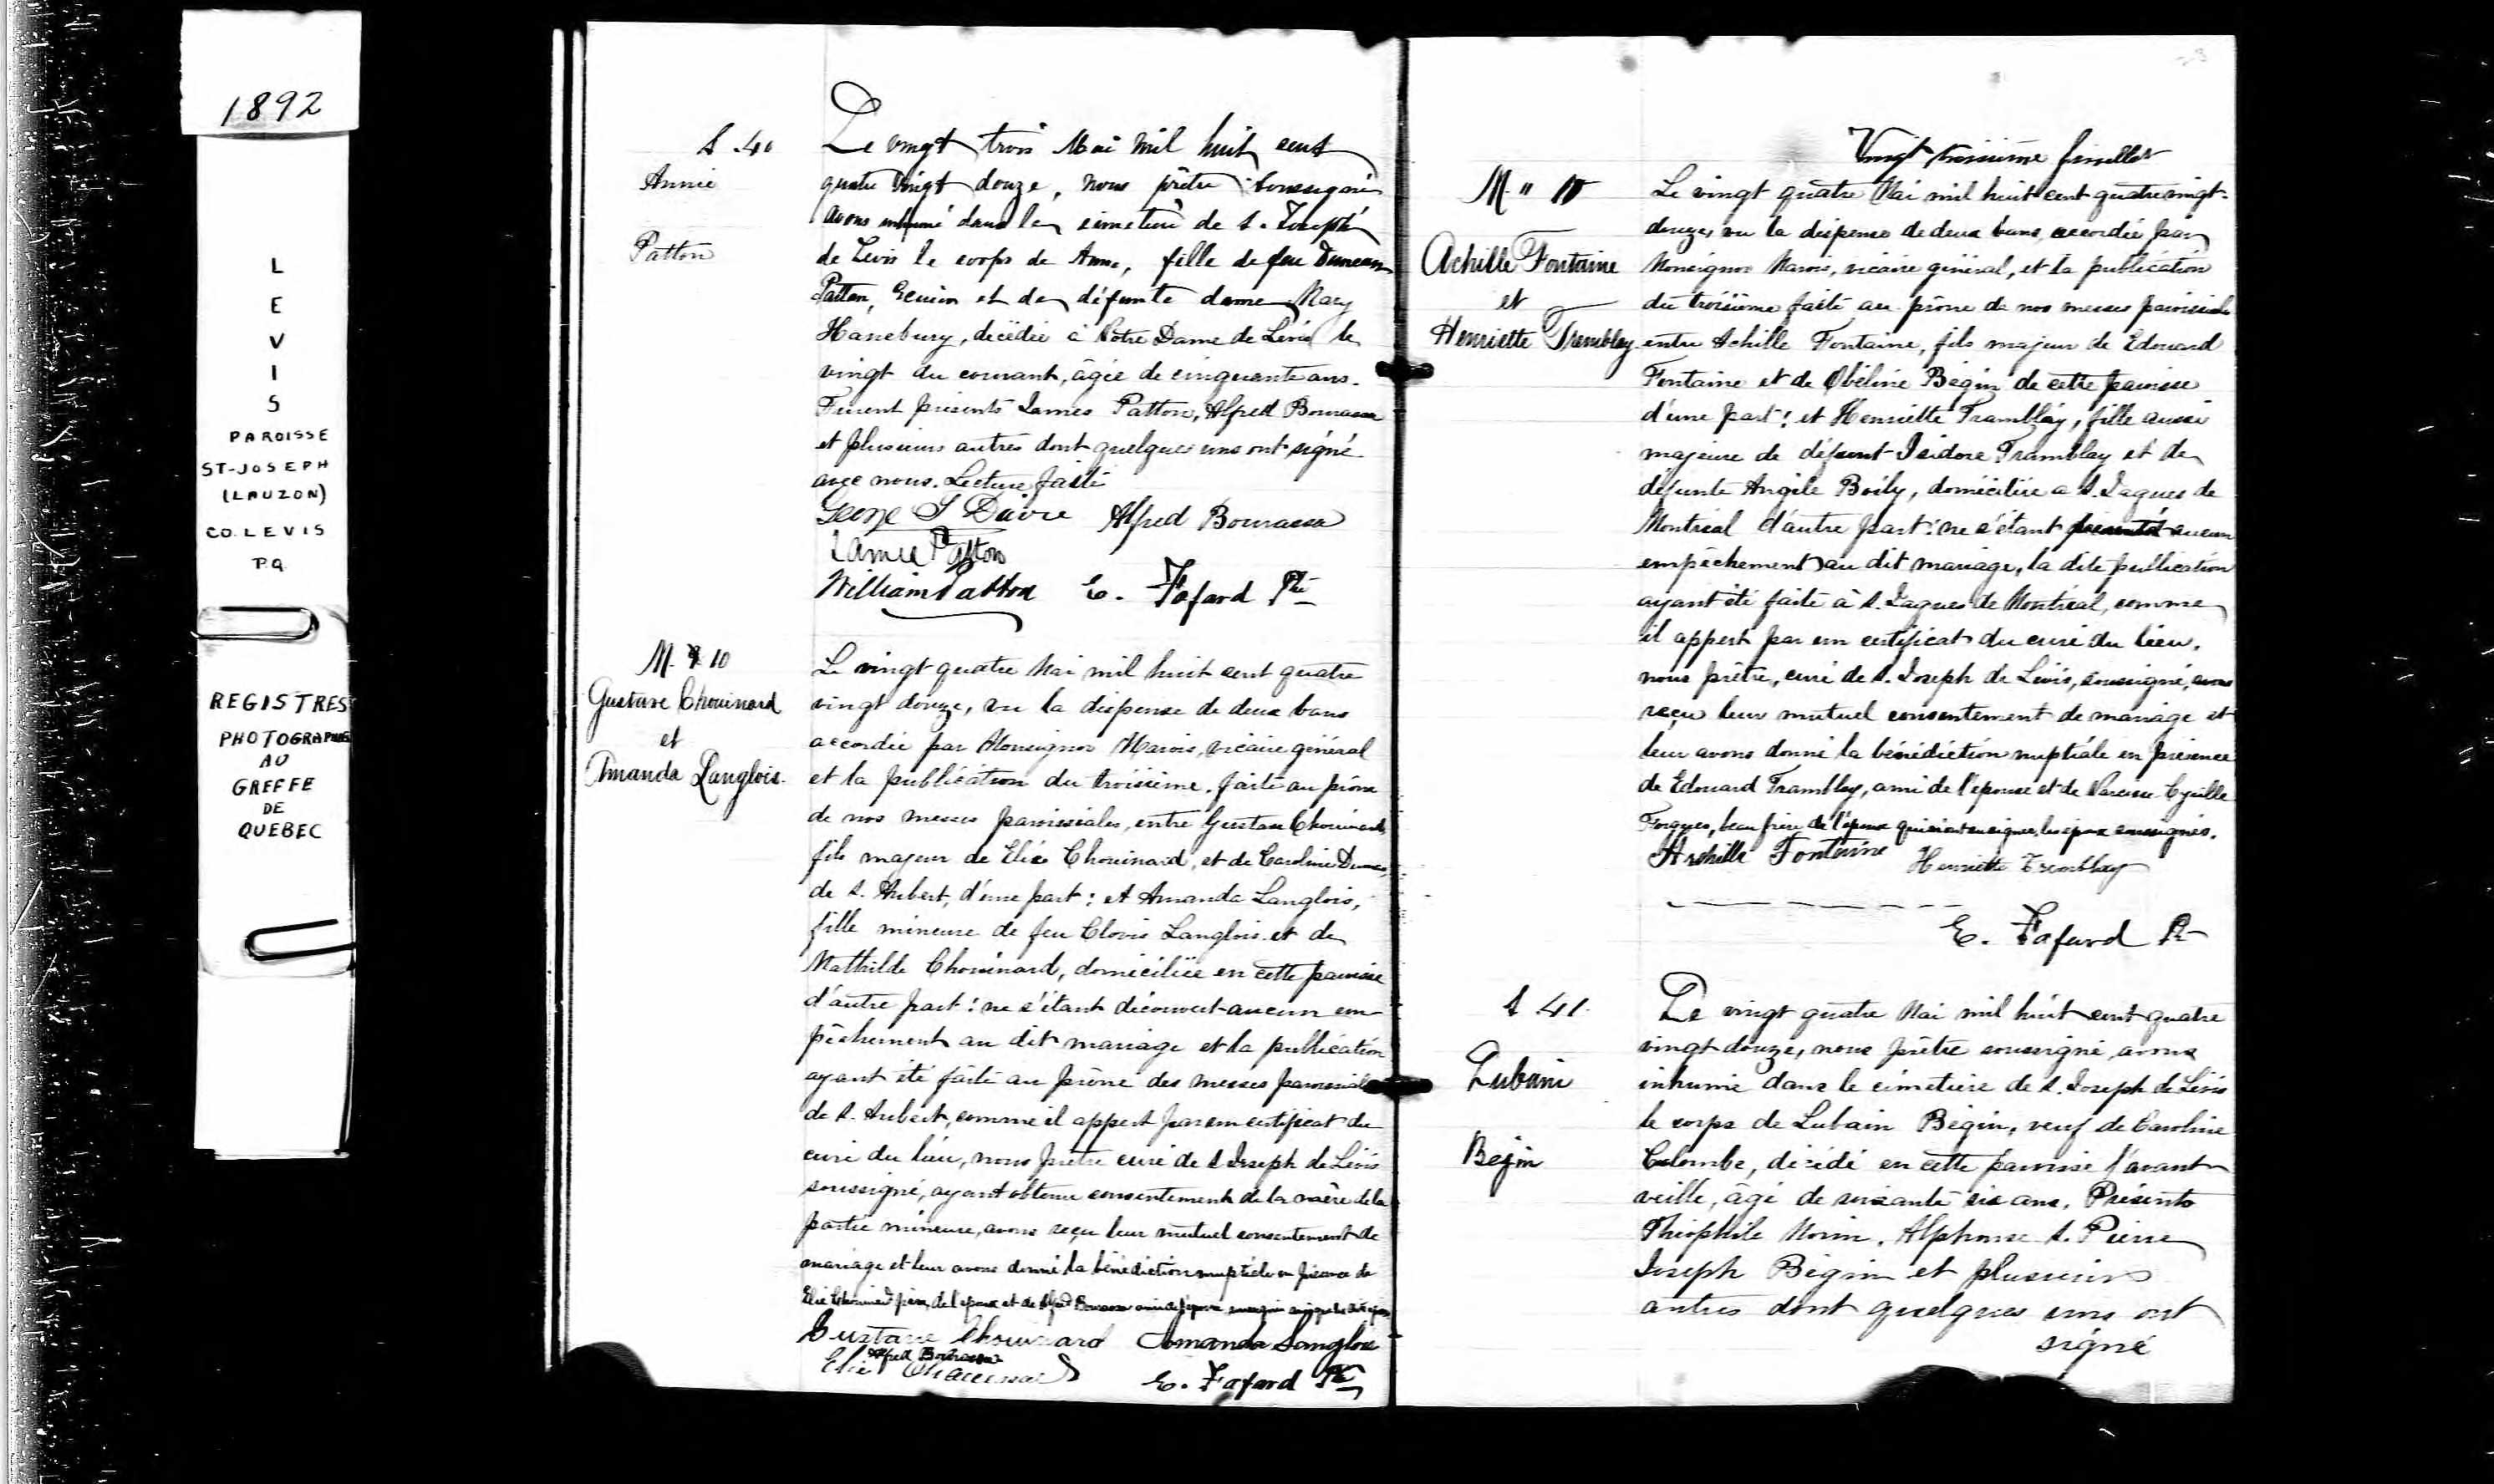 1892
L
E
V
I
S
PAROISSE
ST-JOSEPH
(LAUZON)
CO. LEVIS
P.Q.
REGISTRES
PHOTOGRAPHIES
AU
GREFFE
DE
QUEBEC
S. 40
Annie
Patton
Le vingt trois Mai mil huit cent
quatre vingt douze, nous prêtre soussigné
avons inhumé dans le cimetière de S. Joseph
de Lévis le corps de Anne, fille de feu Duncan
Patton, Ecuier et de défunte dame Mary
Hanebury, décédée à Notre Dame de Lévis le
vingt du courant, âgée de cinquante ans.
Furent présents James Patton, Alfred Bourassa
et plusieurs autres dont quelques uns ont signé
avec nous. Lecture faite
George S Davie Alfred Bourassa
James Patton
William Patton E. Fafard Ptre
M. 10
Gustave Chouinard
et
Amanda Langlois.
Le vingt quatre Mai mil huit cent quatre
vingt douze, vu la dispense de deux bans
accordée par Monseignor Marois, vicaire général
et la publication du troisième, faite au prône
de nos messes paroissiales, entre Gustave Chouinard,
fils majeur de Elie Chouinard, et de Caroline
de S. Aubert, d'une part; et Amanda Langlois,
fille mineure de feu Clovis Langlois et de
Mathilde Chouinard, domiciliée en cette paroisse
d'autre part: ne s'étant découvert aucun em
pêchement au dit mariage et la publication
ayant été faite au prône des messes paroissiales
de S. Aubert, comme il appert par un certificat du
curé du lieu, nous prêtre curé de S Joseph de Lévis
soussigné, ayant obtenu consentement de la mère de la
partie mineure, avons reçu leur mutuel consentement de
mariage et leur avons donné la bénédiction nuptiale en présence de
Elie Chouinard père de l'époux et de Alfred Bourassa ami de l'épouse
Gustave Chouinard Amanda Langlois
Alfred Bourassa
Elie Chouinard
E. Fafard Ptre
Vingt troisième feuillet
M. 11
Achille Fontaine
et
Henriette Tremblay
Le vingt quatre Mai mil huit cent quatre vingt-
douze, vu la dispense de deux bans, accordée par
Monseignor Marois, vicaire général, et la publication
du troisième faite au prône de nos messes paroissiales
entre Achille Fontaine, fils majeur de Edouard
Fontaine et de Obéline Bégin de cette paroisse
d'une part; et Henriette Tramblay, fille aussi
majeure de défunt Isidore Tramblay et de
défunte Angèle Boily, domiciliée a S. Jaques de
Montréal d'autre part: ne s'étant présenté aucun
empêchement au dit mariage, la dite publication
ayant été faite à S. Jaques de Montréal, comme
il appert par un certificat du curé du lieu,
nous prêtre, curé de S. Joseph de Lévis, soussigné, avons
reçu leur mutuel consentement de mariage et
leur avons donné la bénédiction nuptiale en présence
de Edouard Tramblay, ami de l'epouse et de Narcisse Cyrille
Forgues, beau frère de l'époux qui n'ont su signer, les époux soussignés.
Achille Fontaine Henriette Tremblay
E. Fafard Ptre
S. 41.
Lubain
Bégin
Le vingt quatre Mai mil huit cent quatre
vingt douze, nous prêtre soussigné, avons
inhumé dans le cimetière de S. Joseph de Lévis
le corps de Lubain Bégin, veuf de Caroline
Colombe, décédé en cette paroisse l'avant
veille, âgé de soixante six ans. Présents
Théophile Morin, Alphonse S. Pierre
Joseph Bégin et plusieurs
autres dont quelques uns ont
signé